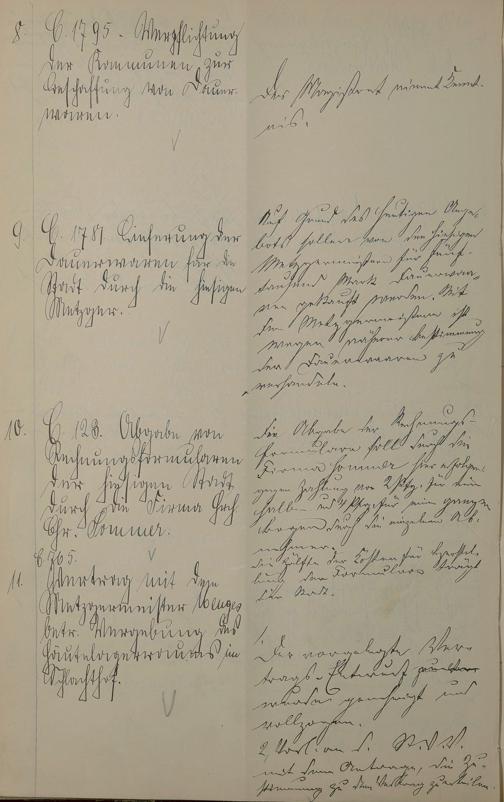 8 C. 1795. Verpflichtung
der Kommunen zur
Beschaffung von Dauer-
waren.
Der Magistrat nimmt Kennt-
nis.
9. C. 1781. Lieferung der
Dauerwaren für die
Stadt durch die hiesigen
Metzger.
Auf Grund des heutigen Ange-
bots sollen von den hiesigen
Metzgermeistern für fünf-
tausend Mark Dauerwa-
ren gekauft werden. Mit
den Metzgermeistern ist
wegen näherer Bestimmung
der Dauerwaren zu
verhandeln.
10. C. 128. Abgabe von
Rechnungsformularen
der hiesigen Stadt
durch die Firma
Chr. Sommer.
Die Abgabe der Rechnungs-
formulare soll durch die
Firma Sommer hier erfolgen
gegen Zahlung von 2 Pfg. für ein
halben und 4 Pfg. für ein ganzen
Bogen durch die einzelnen Ab-
nehmer.
Die Hälfte der Kosten für Herstel-
lung der Formulare trägt
die Stadt.
11. Vertrag mit dem
Metzgermeister Menges
betr. Vergebung des
Häutelagerraums im
Schlachthof.
1. Der vorgelegte Ver-
trags-Entwurf
wurde genehmigt und
vollzogen.
2. Vorl. an d. St.V.V.
mit dem Antrage, die Zu-
stimmung zu dem Vertrag zu erteilen.